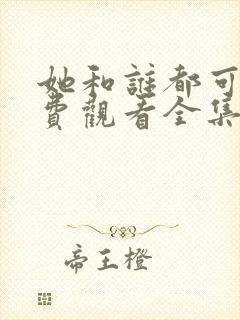 她和誰都可
費觀看全集
帝王橙